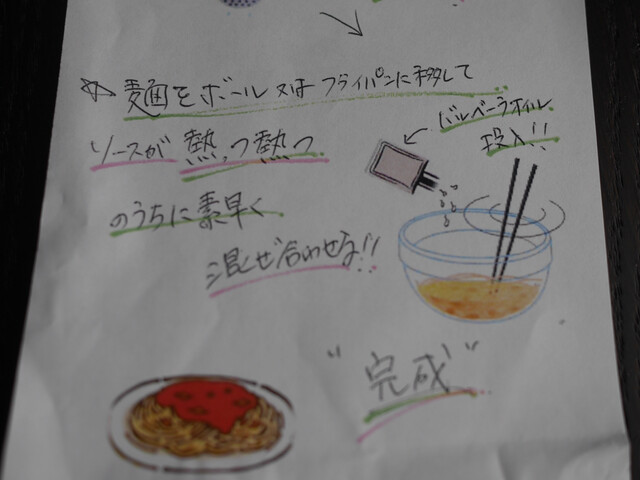 ☆麺をボール又はフライパンに移して
ソースが熱っ熱っ
のうちに素早く
混ぜ合わせる!!
バルベーラオイル
投入!!
"完成"